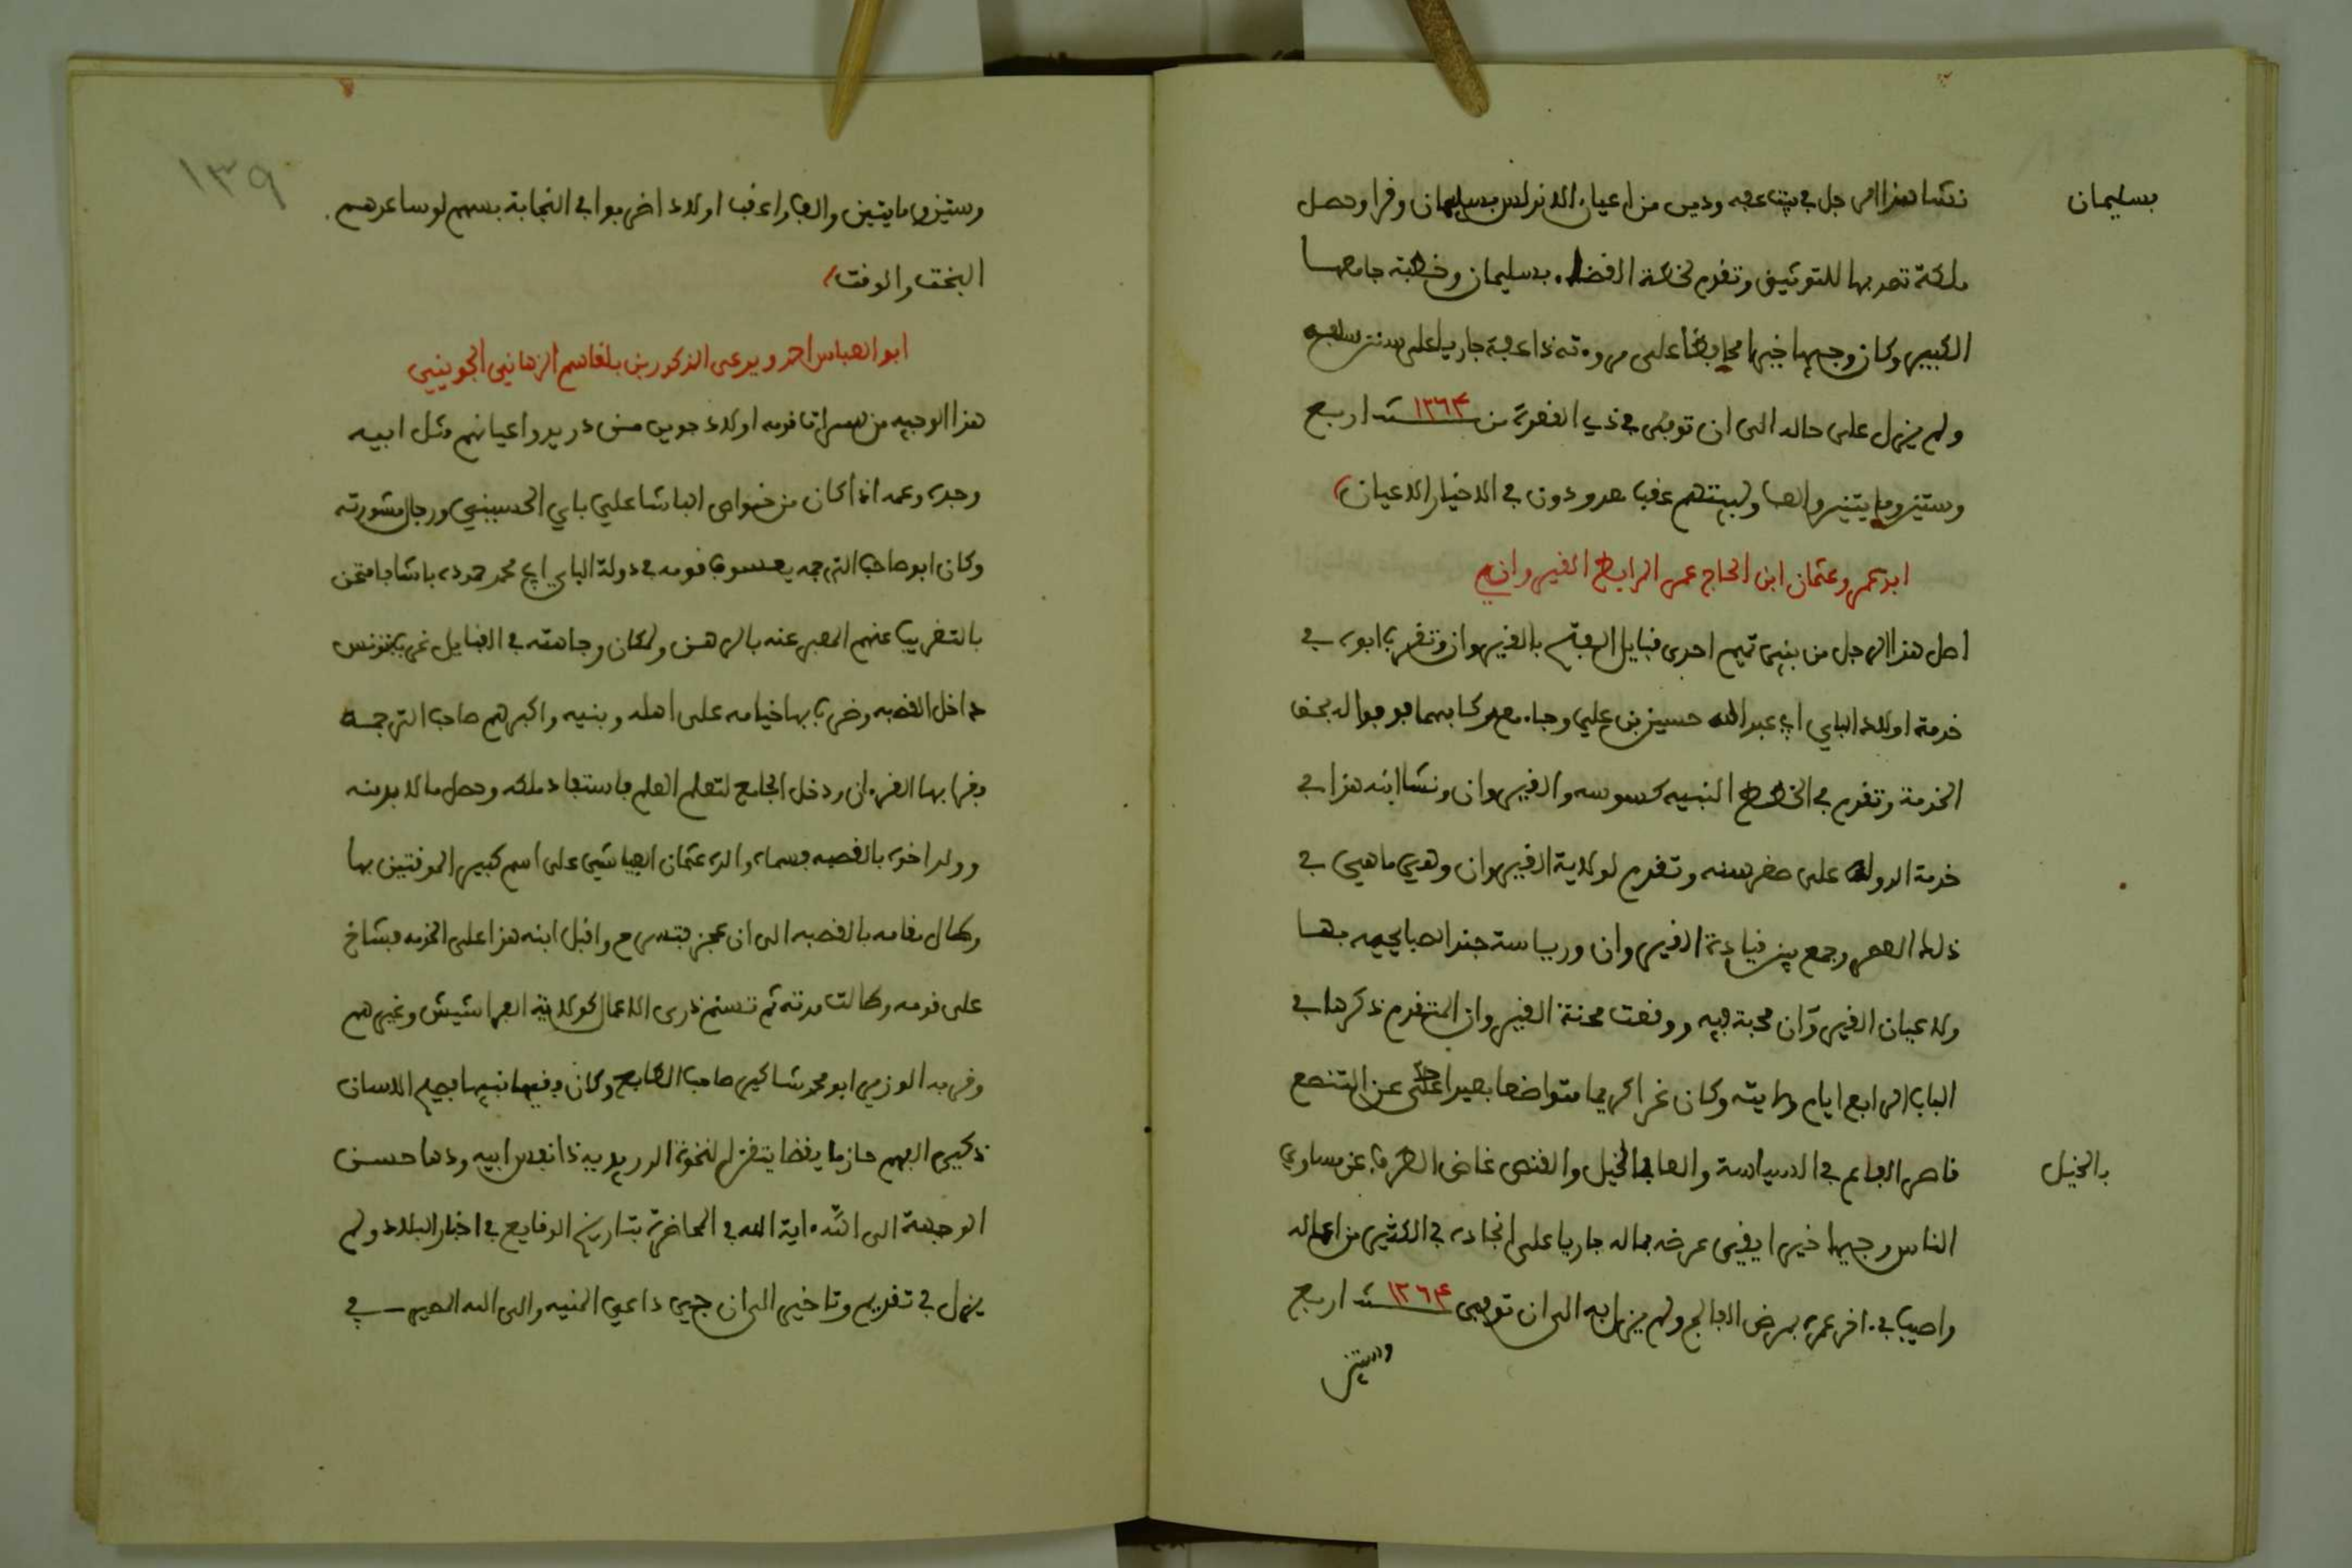 نشا هذا الرجل في بيت عفة ودين من اعيان الاندلس بسليمان وقرا وحصل
بسليمان
ملكة تصدر بها للتوثيق وتقدم لخطة القضاء بسليمان وخطبة جامعها
الكبير وكان وجيها خيرا محافظا على مروءته ذا عفة جاريا على سنن سلفه
ولم يزل على حاله الى ان توفي في ذي القعدة من سنة ١٢٦٤ اربع
وستين ومايتين والف ولبيتهم عقب معدودون في الاخيار الاعيان
ابو عمرو عثمان ابن الحاج عمر المرابط القيرواني
اصل هذا الرجل من بني تميم احدى قبايل العرب بالقيروان وتقرب ابوه في
خدمة اولاد الباي ابي عبد الله حسين بن علي وجاء مع ركابهما فوفوا له بحق
الخدمة وتقدم في الخطط النبيه كسوسه والقيروان ونشا ابنه هذا في
خدمة الدولة على صغر سنه وتقدم لولاية القيروان وهي ما هي في
ذلك العصر وجمع بين قيادة القيروان ورياسة جند الصبايحيه بها
ولاعيان القيروان محبة فيه ووقعت محنة القيروان المتقدم ذكرها في
الباب الرابع ايام ولايته وكان غرا كريما متواضعا بعيدا عن التصنع
قاصر الباع في السياسة والعا بالخيل والقنص غاض الطرف عن مساوي
بالخيل
الناس وجيها خيرا يقي عرضه بماله جاريا على انجاده في الكثير من اعماله
واصيب في اخر عمره بمرض الفالج ولم يزل به الى ان توفي سنة ١٢٦٤ اربع
وستين
١٣٩
وستين ومايتين والف واعقب اولاد اضربوا في النجابة بسهم لو ساعدهم
البخت والوقت
ابو العباس احمد ويدعى الذكور بن بلقاسم الزهاني الجويني
هذا الوجيه من سراة قومه اولاد جوين من دريد واعيانهم مثل ابيه
وجده وعمه اذ كان من خواص الباشا علي باي الحسيني ورجال مشورته
وكان ابو صاحب الترجمه يعسوب قومه في دولة الباي ابي محمد حموده باشا فامتحن
بالتغريب عنهم المعبر عنه بالرهن ولمكان وجاهته في القبايل غرب بتونس
داخل القصبه وضرب بها خيامه على اهله وبنيه واكبرهم صاحب الترجمة
فقرا بها القرءان ودخل الجامع لتعلم العلم فاستفاد ملكه وحصل ما لا بد منه
وولد اخوه بالقصبه فسماه والده عثمان العياشي على اسم كبير الموقتين بها
وطال مقامه بالقصبه الى ان عجز فتسرح واقبل ابنه هذا على الخدمه فشاخ
على قومه وطالت مدته ثم تسنم ذرى الاعمال كولاية الفراشيش وغيرهم
وقربه الوزير ابو محمد شاكير صاحب الطابع وكان فقيها نبيها فصيح اللسان
ذكي الفهم حازما يقضا يتقزم للنخوة الدريديه ذا نفس ابيه ودها حسن
الوجهة الى الله ءاية الله في المحاضرة بتاريخ الوقايع في اخبار البلاد ولم
يزل في تقديم وتاخير الى ان جرى داعي المنيه والى الله المصير في